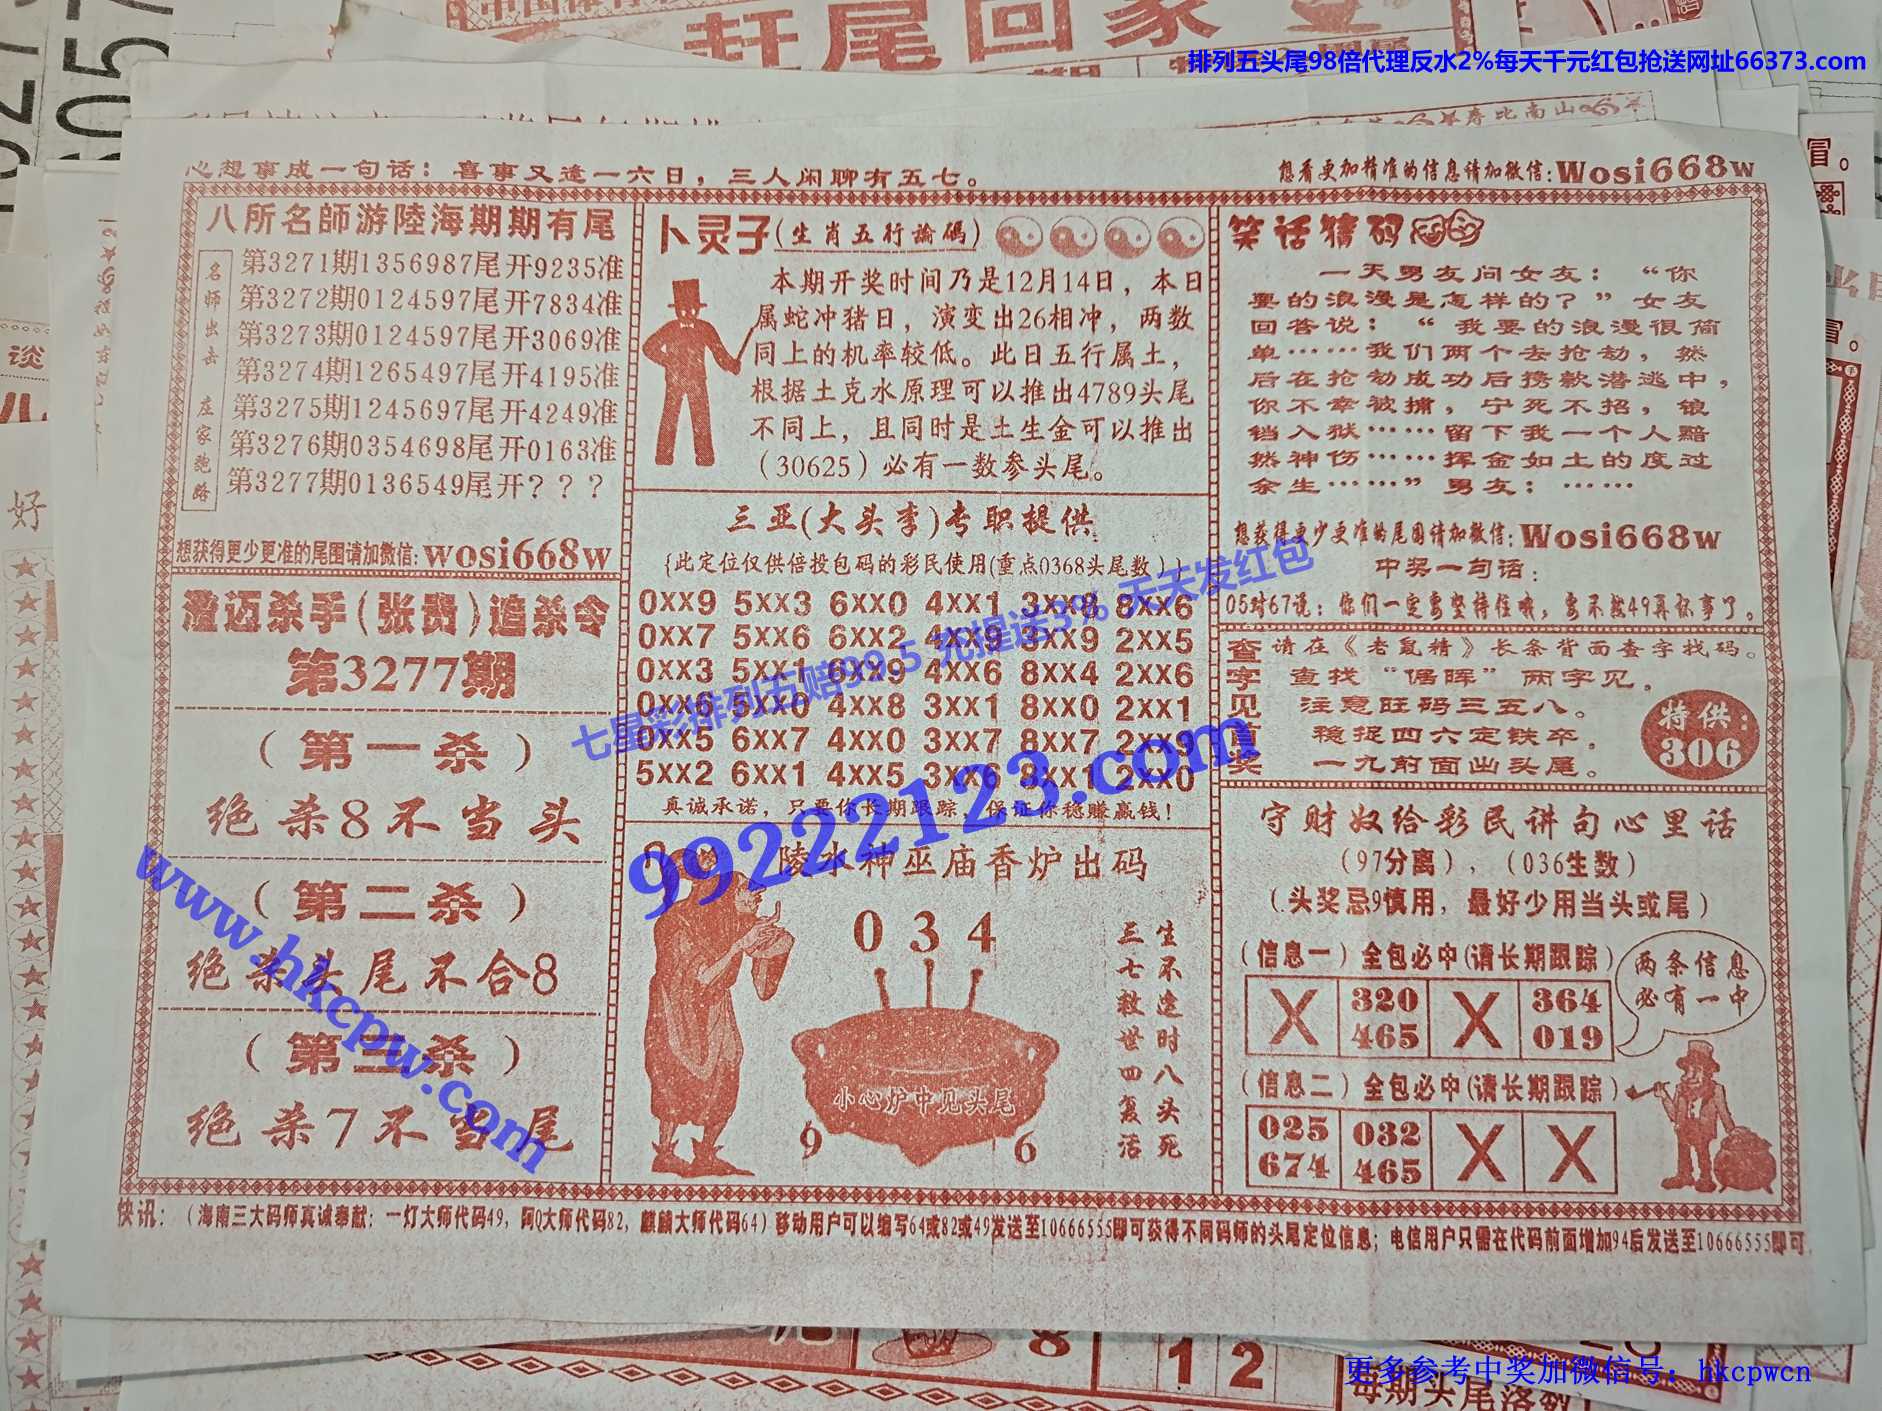 中国体育彩
赶尾回家
排列五头尾98倍代理反水2%每天千元红包抢送网址66373.com
寿比南山
心想事成一句话：喜事又逢一六日，三人闲聊有五七。
想看更加精准的信息请加微信:Wosi668w
八所名師游陸海期期有尾
名师出击 庄家跑路
第3271期1356987尾开9235准
第3272期0124597尾开7834准
第3273期0124597尾开3069准
第3274期1265497尾开4195准
第3275期1245697尾开4249准
第3276期0354698尾开0163准
第3277期0136549尾开？？？
想获得更少更准的尾围请加微信:wosi668w
澄迈杀手(张贵)追杀令
第3277期
（第一杀）
绝杀8不当头
（第二杀）
绝杀头尾不合8
（第三杀）
绝杀7不当尾
卜灵子(生肖五行論碼)
本期开奖时间乃是12月14日，本日
属蛇冲猪日，演变出26相冲，两数
同上的机率较低。此日五行属土，
根据土克水原理可以推出4789头尾
不同上，且同时是土生金可以推出
（30625）必有一数参头尾。
三亚(大头李)专职提供
{此定位仅供倍投包码的彩民使用(重点0368头尾数)}
0XX9 5XX3 6XX0 4XX1 3XX8 8XX6
0XX7 5XX6 6XX2 4XX9 3XX9 2XX5
0XX3 5XX1 6XX9 4XX6 8XX4 2XX6
0XX6 5XX0 4XX8 3XX1 8XX0 2XX1
0XX5 6XX7 4XX0 3XX7 8XX7 2XX9
5XX2 6XX1 4XX5 3XX6 8XX1 2XX0
真诚承诺，只要你长期跟踪，保证你稳赚赢钱！
陵水神巫庙香炉出码
0 3 4
生不逢时八头死
三七救世四复活
小心炉中见头尾
9 6
笑话猜码
一天男友问女友：“你
要的浪漫是怎样的？”女友
回答说：“我要的浪漫很简
单……我们两个去抢劫，然
后在抢劫成功后携款潜逃中，
你不幸被捕，宁死不招，锒
铛入狱……留下我一个人黯
然神伤……挥金如土的度过
余生……”男友：……
想获得更少更准的尾围请加微信:Wosi668w
中奖一句话：
05对67说：你们一定要坚持住哦，要不然49再坏事了。
查字见首奖
请在《老鼠精》长条背面查字找码。
查找“偈晖”两字见。
注意旺码三五八。
稳捉四六定铁卒。
一九前面出头尾。
特供：
306
守财奴给彩民讲句心里话
（97分离），（036生数）
（头奖忌9慎用，最好少用当头或尾）
（信息一）全包必中(请长期跟踪)
X 320 X 364
465 019
两条信息
必有一中
（信息二）全包必中(请长期跟踪)
025 032 X X
674 465
快讯：（海南三大码师真诚奉献：一灯大师代码49，阿Q大师代码82，麒麟大师代码64）移动用户可以编写64或82或49发送至10666555即可获得不同码师的头尾定位信息；电信用户只需在代码前面增加94后发送至10666555即可
七星彩排列五赔99.5 充提送3% 天天发红包
99222123.com
www.hkcpw.com
8
1 2
每期头尾落数
更多参考中奖加微信号：hkcpwcn